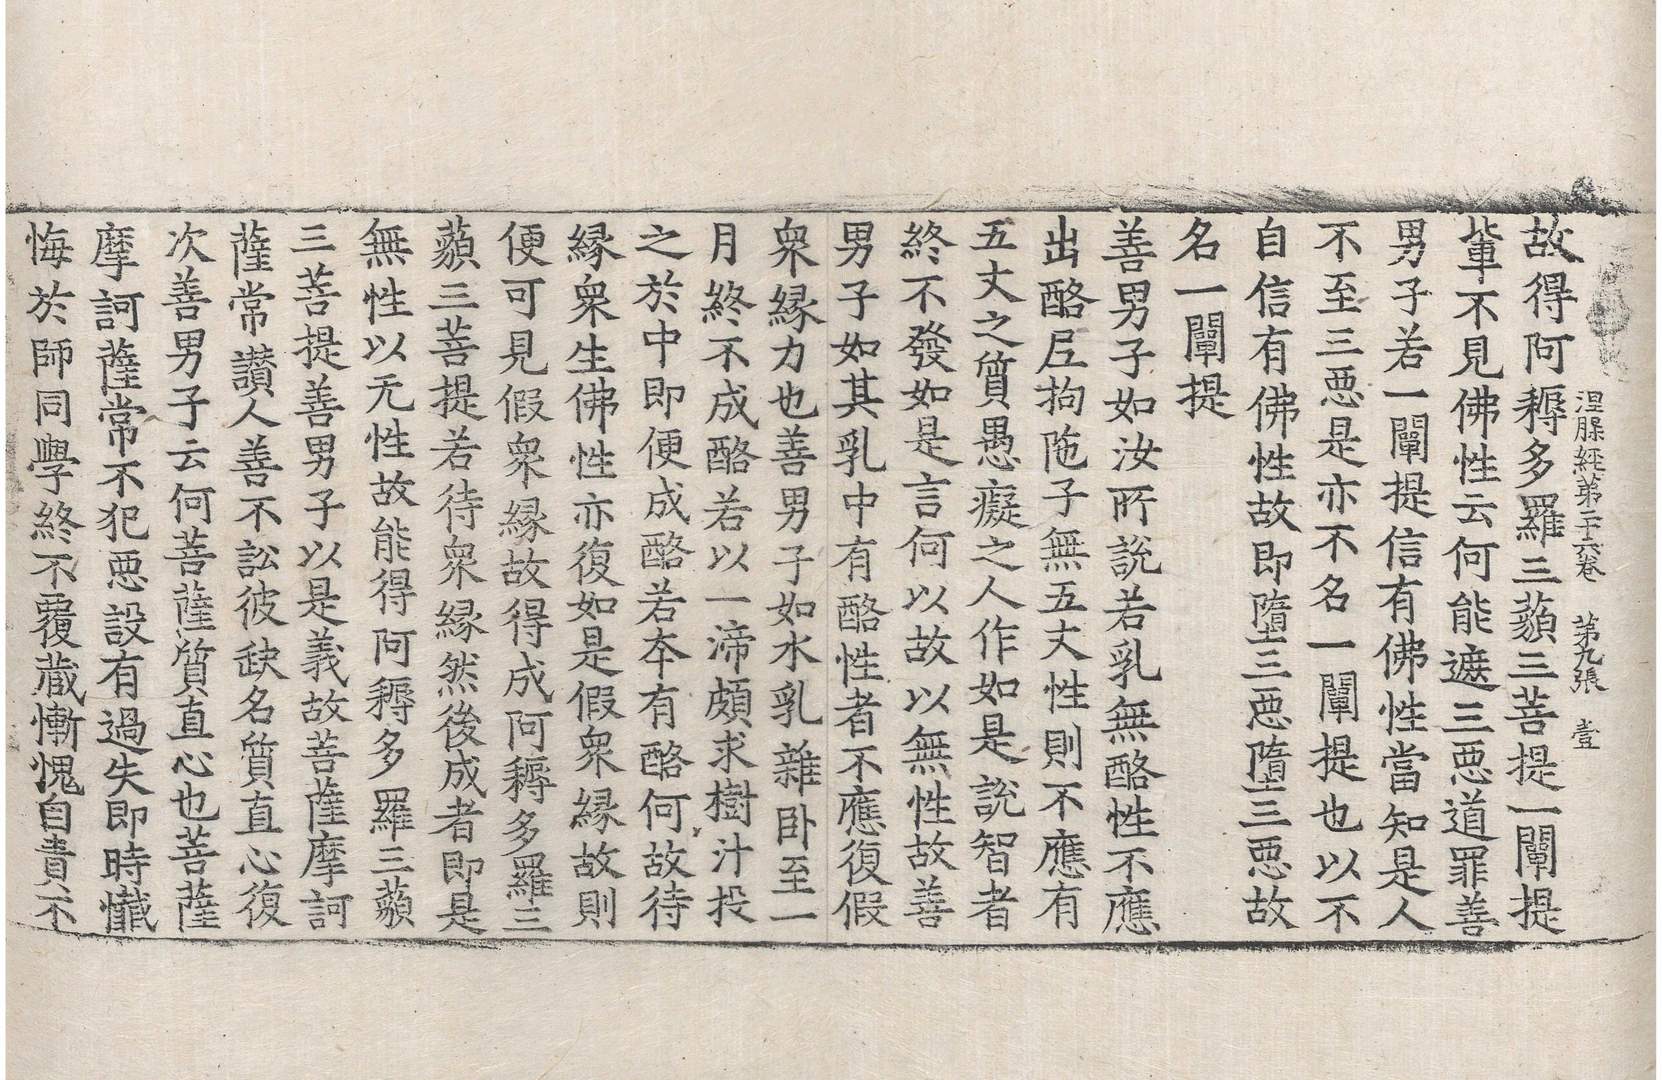 涅脲經苐二十六卷 苐九張 壹
故得阿耨多羅三藐三菩提一闡提
軰不見佛性云何能遮三惡道罪善
男子若一闡提信有佛性當知是人
不至三惡是亦不名一闡提也以不
自信有佛性故即墮三惡墮三惡故
名一闡提
善男子如汝所說若乳無酪性不應
出酪尼拘陁子無五丈性則不應有
五丈之質愚癡之人作如是說智者
終不發如是言何以故以無性故善
男子如其乳中有酪性者不應復假
衆緣力也善男子如水乳雜卧至一
月終不成酪若以一渧頗求樹汁投
之於中即便成酪若本有酪何故待
緣衆生佛性亦復如是假衆緣故則
便可見假衆緣故得成阿耨多羅三
藐三菩提若待衆緣然後成者即是
無性以无性故能得阿耨多羅三藐
三菩提善男子以是義故菩薩摩訶
薩常讃人善不訟彼缺名質直心復
次善男子云何菩薩質直心也菩薩
摩訶薩常不犯惡設有過失即時懺
悔於師同學終不覆蔵慚愧自責不